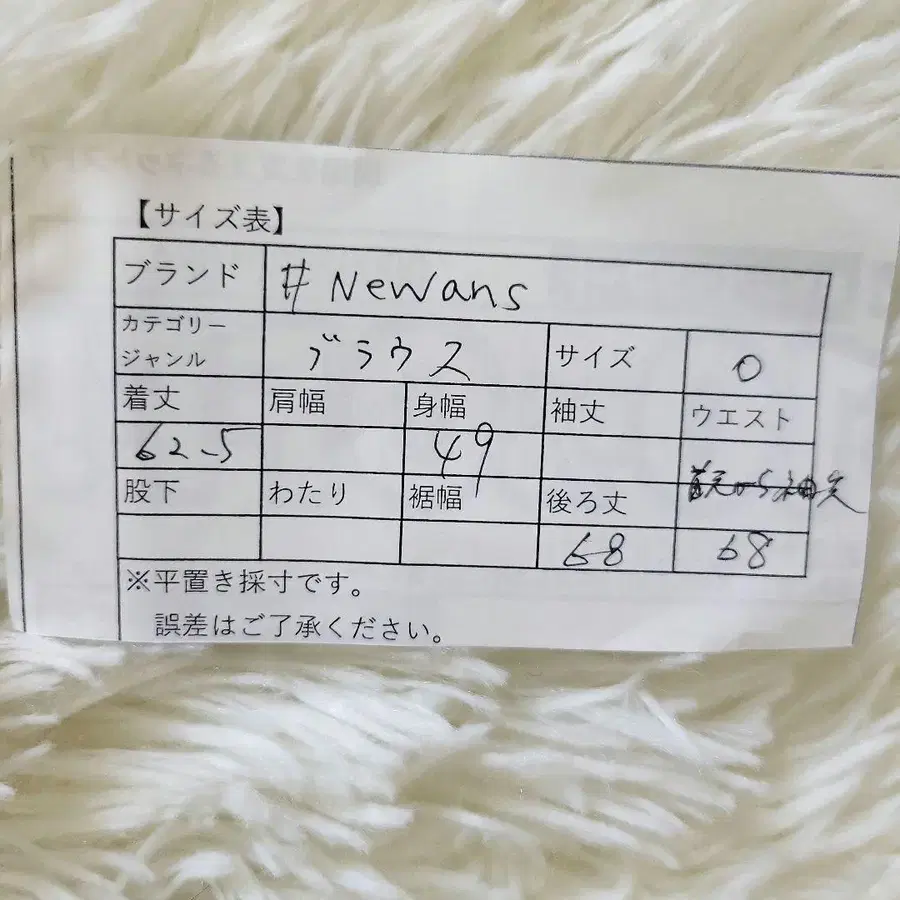 【サイズ表】
ブランド # Newans
カテゴリー
ジャンル ブラウス サイズ 0
着丈 肩幅 身幅 袖丈 ウエスト
62.5 49
股下 わたり 裾幅 後ろ丈 首元から袖丈
68 68
※平置き採寸です。
誤差はご了承ください。